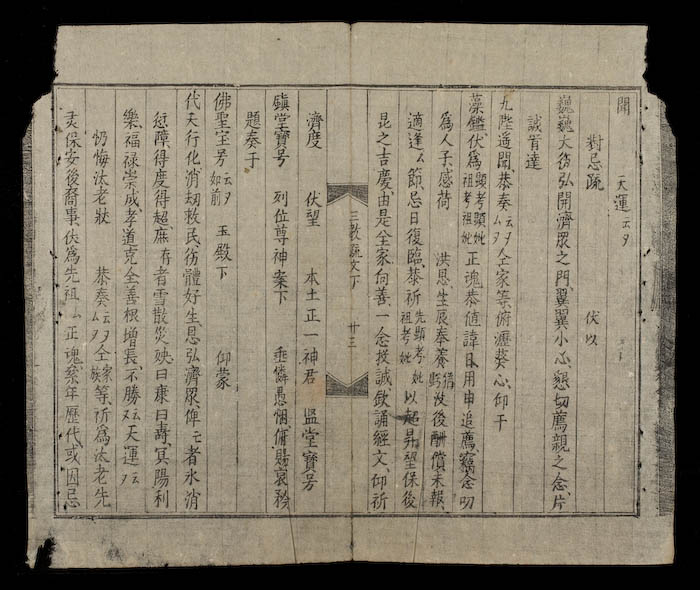 聞　天運云夕
對忌疏　伏以
巍巍大衜弘開濟眾之門、翼翼小心懇切薦親之念、片
誠首達
九陛遥聞、恭奏云夕厶夕全家等俯瀝葵心、仰干
藻鑑伏為顯考顯妣祖考祖妣正魂恭值諱日、用申追薦、竊念叨
為人子感荷　洪恩、生辰奉養猶虧歿後酬償未報、
適逢厶節、忌日復臨、恭祈先顯考妣祖考妣以超昇、望保後
昆之吉慶、由是全家向善、一念投誠、敬誦經文、仰祈
三教疏文下　廿三
濟度　伏望　本土正一神君　監堂寶号
鎮堂寶号　列位尊神案下　垂憐愚悃俯賜哀矜
題奏于
佛聖宝号云夕如前　玉殿下　仰蒙
代天行化、消刧救民、衜體好生、恩弘濟眾、俾亡者氷消
愆障、得度得超、庶存者雪散災殃、曰康曰壽、冥陽利
樂、福禄崇成、孝道克全、善根增長、不勝云天運云云
懺汰老狀　恭奏云夕厶夕全家族等、祈為汰老先
灵保安後裔事、伏為先祖厶正魂年歷代、或因忌